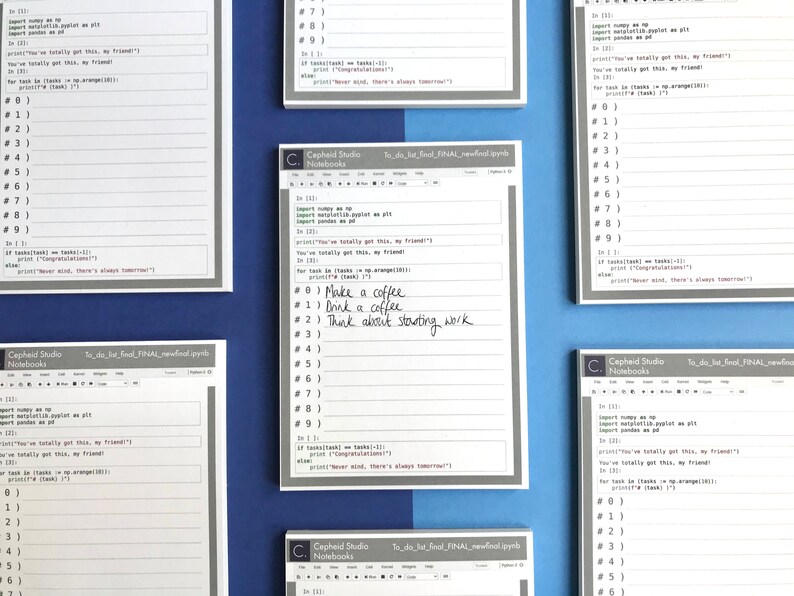 In [1]:
import numpy as np
import matplotlib.pyplot as plt
import pandas as pd
In [2]:
print("You've totally got this, my friend!")
You've totally got this, my friend!
In [3]:
for task in (tasks := np.arange(10)):
print(f"# {task} )")
# 0 )
# 1 )
# 2 )
# 3 )
# 4 )
# 5 )
# 6 )
# 7 )
# 8 )
# 9 )
In [ ]:
if tasks[task] == tasks[-1]:
print ("Congratulations!")
else:
print("Never mind, there's always tomorrow!")
# 7 )
# 8 )
# 9 )
In [ ]:
if tasks[task] == tasks[-1]:
print ("Congratulations!")
else:
print("Never mind, there's always tomorrow!")
In [1]:
import numpy as np
import matplotlib.pyplot as plt
import pandas as pd
In [2]:
print("You've totally got this, my friend!")
You've totally got this, my friend!
In [3]:
for task in (tasks := np.arange(10)):
print(f"# {task} )")
# 0 )
# 1 )
# 2 )
# 3 )
# 4 )
# 5 )
# 6 )
# 7 )
# 8 )
# 9 )
In [ ]:
if tasks[task] == tasks[-1]:
print ("Congratulations!")
else:
print("Never mind, there's always tomorrow!")
C. Cepheid Studio Notebooks To_do_list_final_FINAL_newfinal.ipynb
File Edit View Insert Cell Kernel Widgets Help Trusted Python 3
Run Code
In [1]:
import numpy as np
import matplotlib.pyplot as plt
import pandas as pd
In [2]:
print("You've totally got this, my friend!")
You've totally got this, my friend!
In [3]:
for task in (tasks := np.arange(10)):
print(f"# {task} )")
# 0 ) Make a coffee
# 1 ) Drink a coffee
# 2 ) Think about starting work
# 3 )
# 4 )
# 5 )
# 6 )
# 7 )
# 8 )
# 9 )
In [ ]:
if tasks[task] == tasks[-1]:
print ("Congratulations!")
else:
print("Never mind, there's always tomorrow!")
Cepheid Studio Notebooks To_do_list_final_FINAL_newfinal.ipynb
Edit View Insert Cell Kernel Widgets Help Trusted Python 3
Run Code
[1]:
import numpy as np
import matplotlib.pyplot as plt
import pandas as pd
[2]:
print("You've totally got this, my friend!")
You've totally got this, my friend!
In [3]:
for task in (tasks := np.arange(10)):
print(f"# {task} )")
0 )
1 )
2 )
3 )
# 4 )
# 5 )
# 6 )
# 7 )
C. Cepheid Studio Notebooks To_do_list_final_FINAL_newfinal
File Edit View Insert Cell Kernel Widgets Help Trusted
Run Code
In [1]:
import numpy as np
import matplotlib.pyplot as plt
import pandas as pd
In [2]:
print("You've totally got this, my friend!")
You've totally got this, my friend!
In [3]:
for task in (tasks := np.arange(10)):
print(f"# {task} )")
# 0 )
# 1 )
# 2 )
# 3 )
# 4 )
# 5 )
# 6 )
C. Cepheid Studio Notebooks To_do_list_final_FINAL_newfinal.ipynb
File Edit View Insert Cell Kernel Widgets Help Trusted Python 3
Run Code
In [1]: